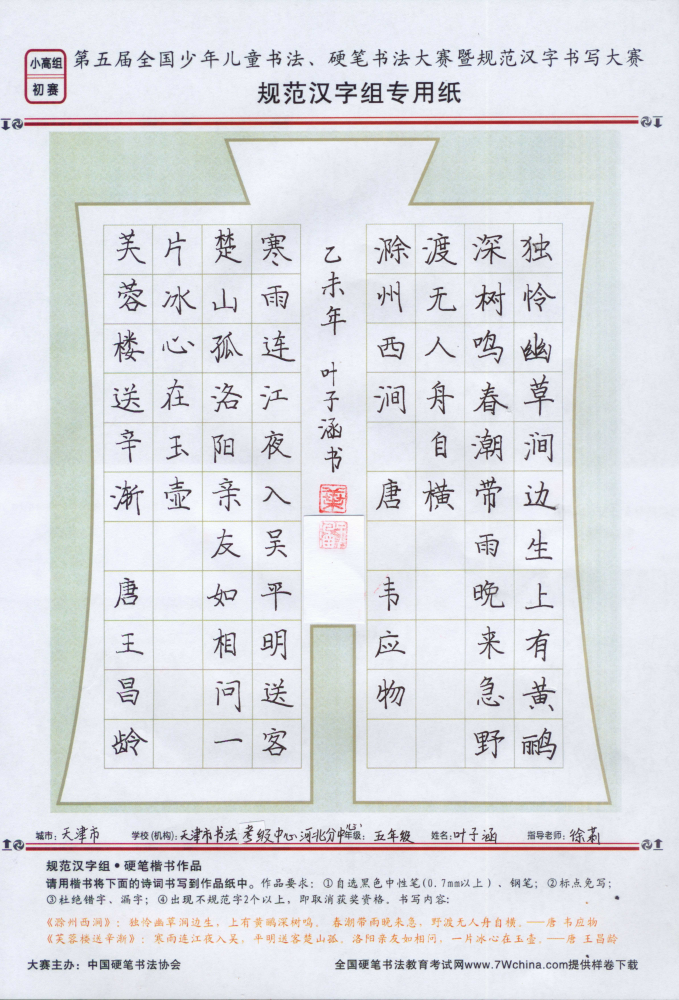 小高组
初赛
第五届全国少年儿童书法、硬笔书法大赛暨规范汉字书写大赛
规范汉字组专用纸
独怜幽草涧边生上有黄鹂
深树鸣春潮带雨晚来急野
渡无人舟自横
滁州西涧 唐 韦应物
乙未年 叶子涵书
寒雨连江夜入吴平明送客
楚山孤洛阳亲友如相问一
片冰心在玉壶
芙蓉楼送辛渐 唐王昌龄
城市：天津市 学校(机构)：天津市书法考级中心河北分中心 年级：五年级 姓名：叶子涵 指导老师：徐莉
规范汉字组●硬笔楷书作品
请用楷书将下面的诗词书写到作品纸中。作品要求：①自选黑色中性笔(0.7mm以上)、钢笔；②标点免写；
③杜绝错字、漏字；④出现不规范字2个以上，即取消获奖资格。书写内容：
《滁州西涧》：独怜幽草涧边生，上有黄鹂深树鸣。春潮带雨晚来急，野渡无人舟自横。——唐 韦应物
《芙蓉楼送辛渐》：寒雨连江夜入吴，平明送客楚山孤。洛阳亲友如相问，一片冰心在玉壶。——唐 王昌龄
大赛主办：中国硬笔书法协会 全国硬笔书法教育考试网www.7Wchina.com提供样卷下载